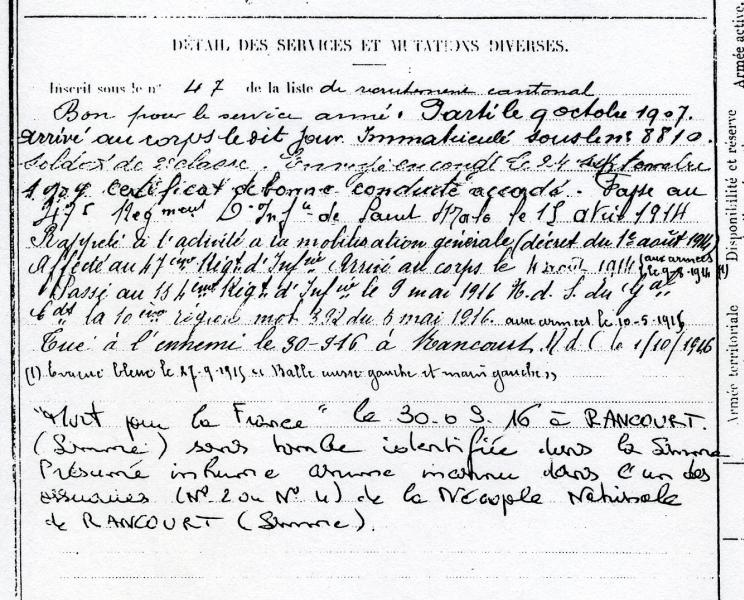 DÉTAIL DES SERVICES ET MUTATIONS DIVERSES.
Inscrit sous le n° 47 de la liste de recrutement cantonal
Bon pour le service armé. Parti le 9 octobre 1907.
Arrivé au corps le dit jour. Immatriculé sous le n° 8810.
Soldat de 2e classe. Envoyé en congé le 24 septembre
1909 certificat de bonne conduite accordé. Passe au
47e Régiment D'Infie de Saint Malo le 15 avril 1914
Rappelé à l'activité a la mobilisation générale (décret du 1er août 1914)
Affecté au 47ème Régt d'Infrie Arrivé au corps le 4 août 1914 (aux armées
le 9-8-1914 (1)
Passé au 154ème Régt d'Infrie le 9 mai 1916 N.d.S. du Gal
Cdt la 10ème région mot 392 du 5 mai 1916. aux armées le 10-5-1916
Tué à l'ennemi le 30-9-16 à Rancourt M.d.C le 1/10/1916
(1) Evacué blessé le 27-9-1915 « Balle cuisse gauche et main gauche »
"Mort pour la France" le 30-09.16 à RANCOURT.
(Somme) sans tombe identifiée dans la Somme
Présumé inhumé comme inconnu dans l'un des
ossuaires (N° 2 ou N° 4) de la Nécropole Nationale
de RANCOURT (Somme).
Armée active,
Disponibilité et réserve
Armée territoriale